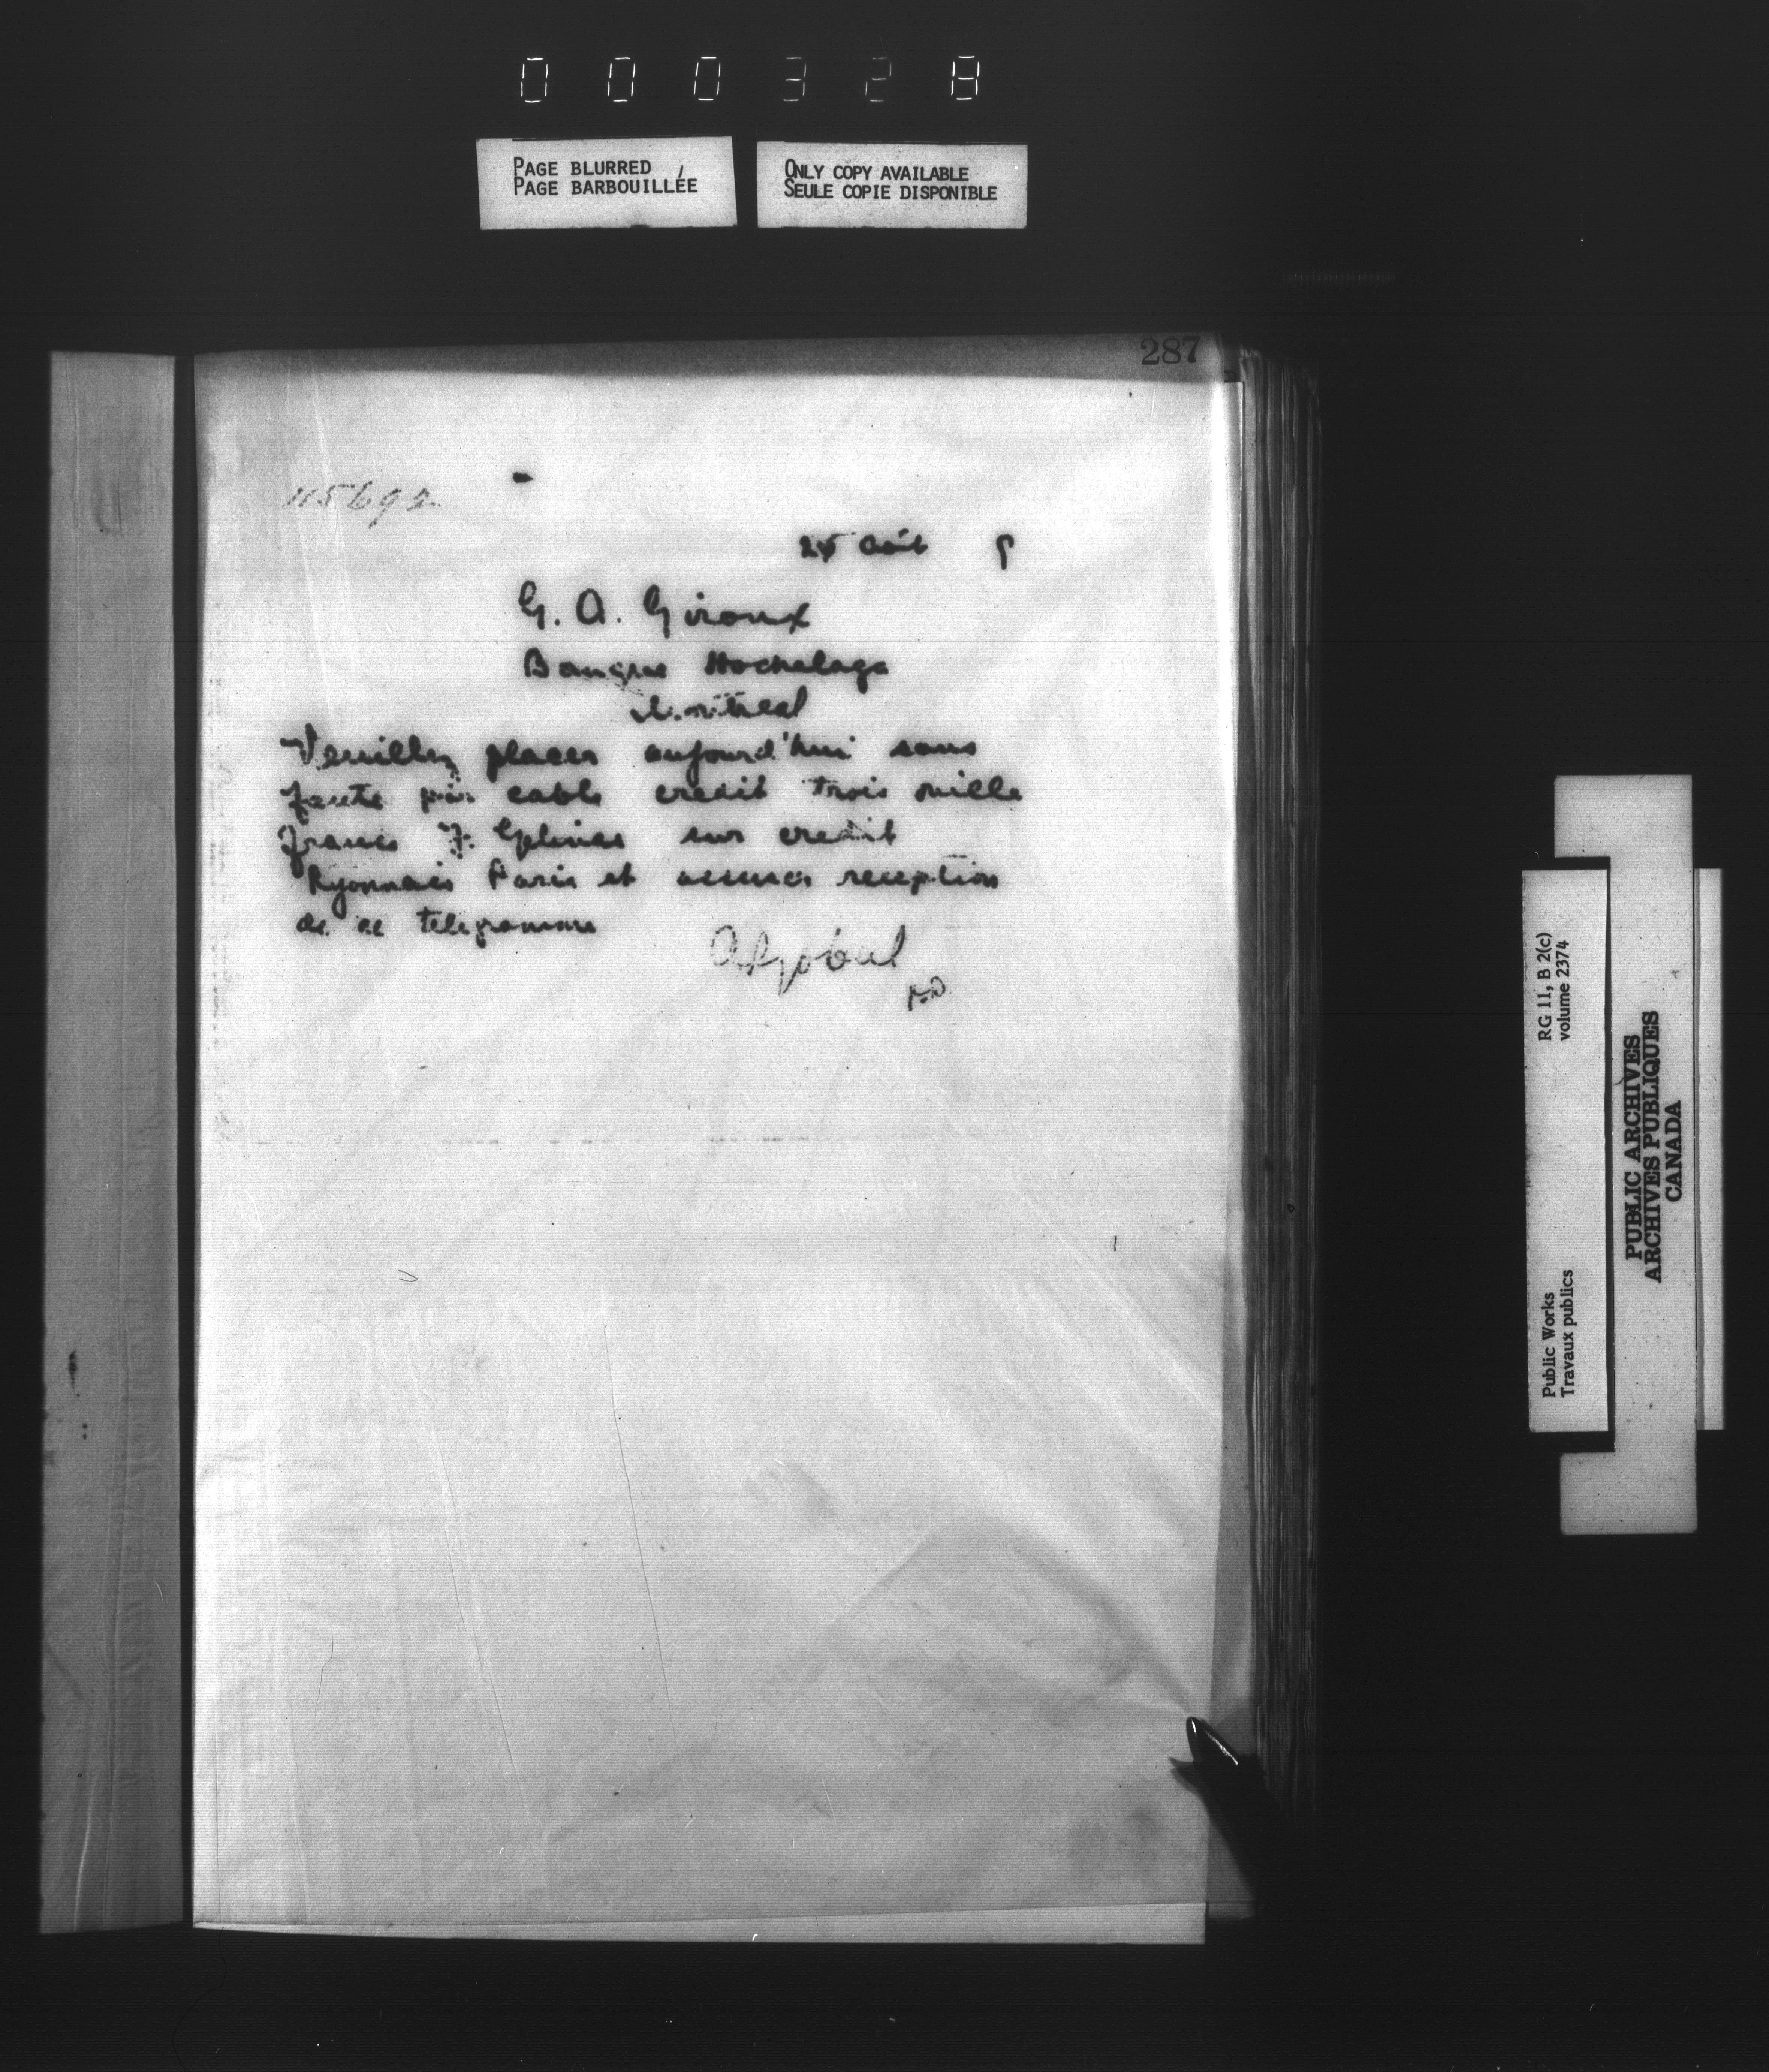 000328
PAGE BLURRED
PAGE BARBOUILLÉE
ONLY COPY AVAILABLE
SEULE COPIE DISPONIBLE
287
115692
août 9
G. A. Giroux
Banque Hochelaga
Montreal
Veuillez placer aujourd'hui sans
faute par cable credit trois mille
francs F. Gelinas sur credit
Lyonnais Paris et accuser reception
de ce telegramme
RG 11, B 2(c)
volume 2374
Public Works
Travaux publics
PUBLIC ARCHIVES
ARCHIVES PUBLIQUES
CANADA